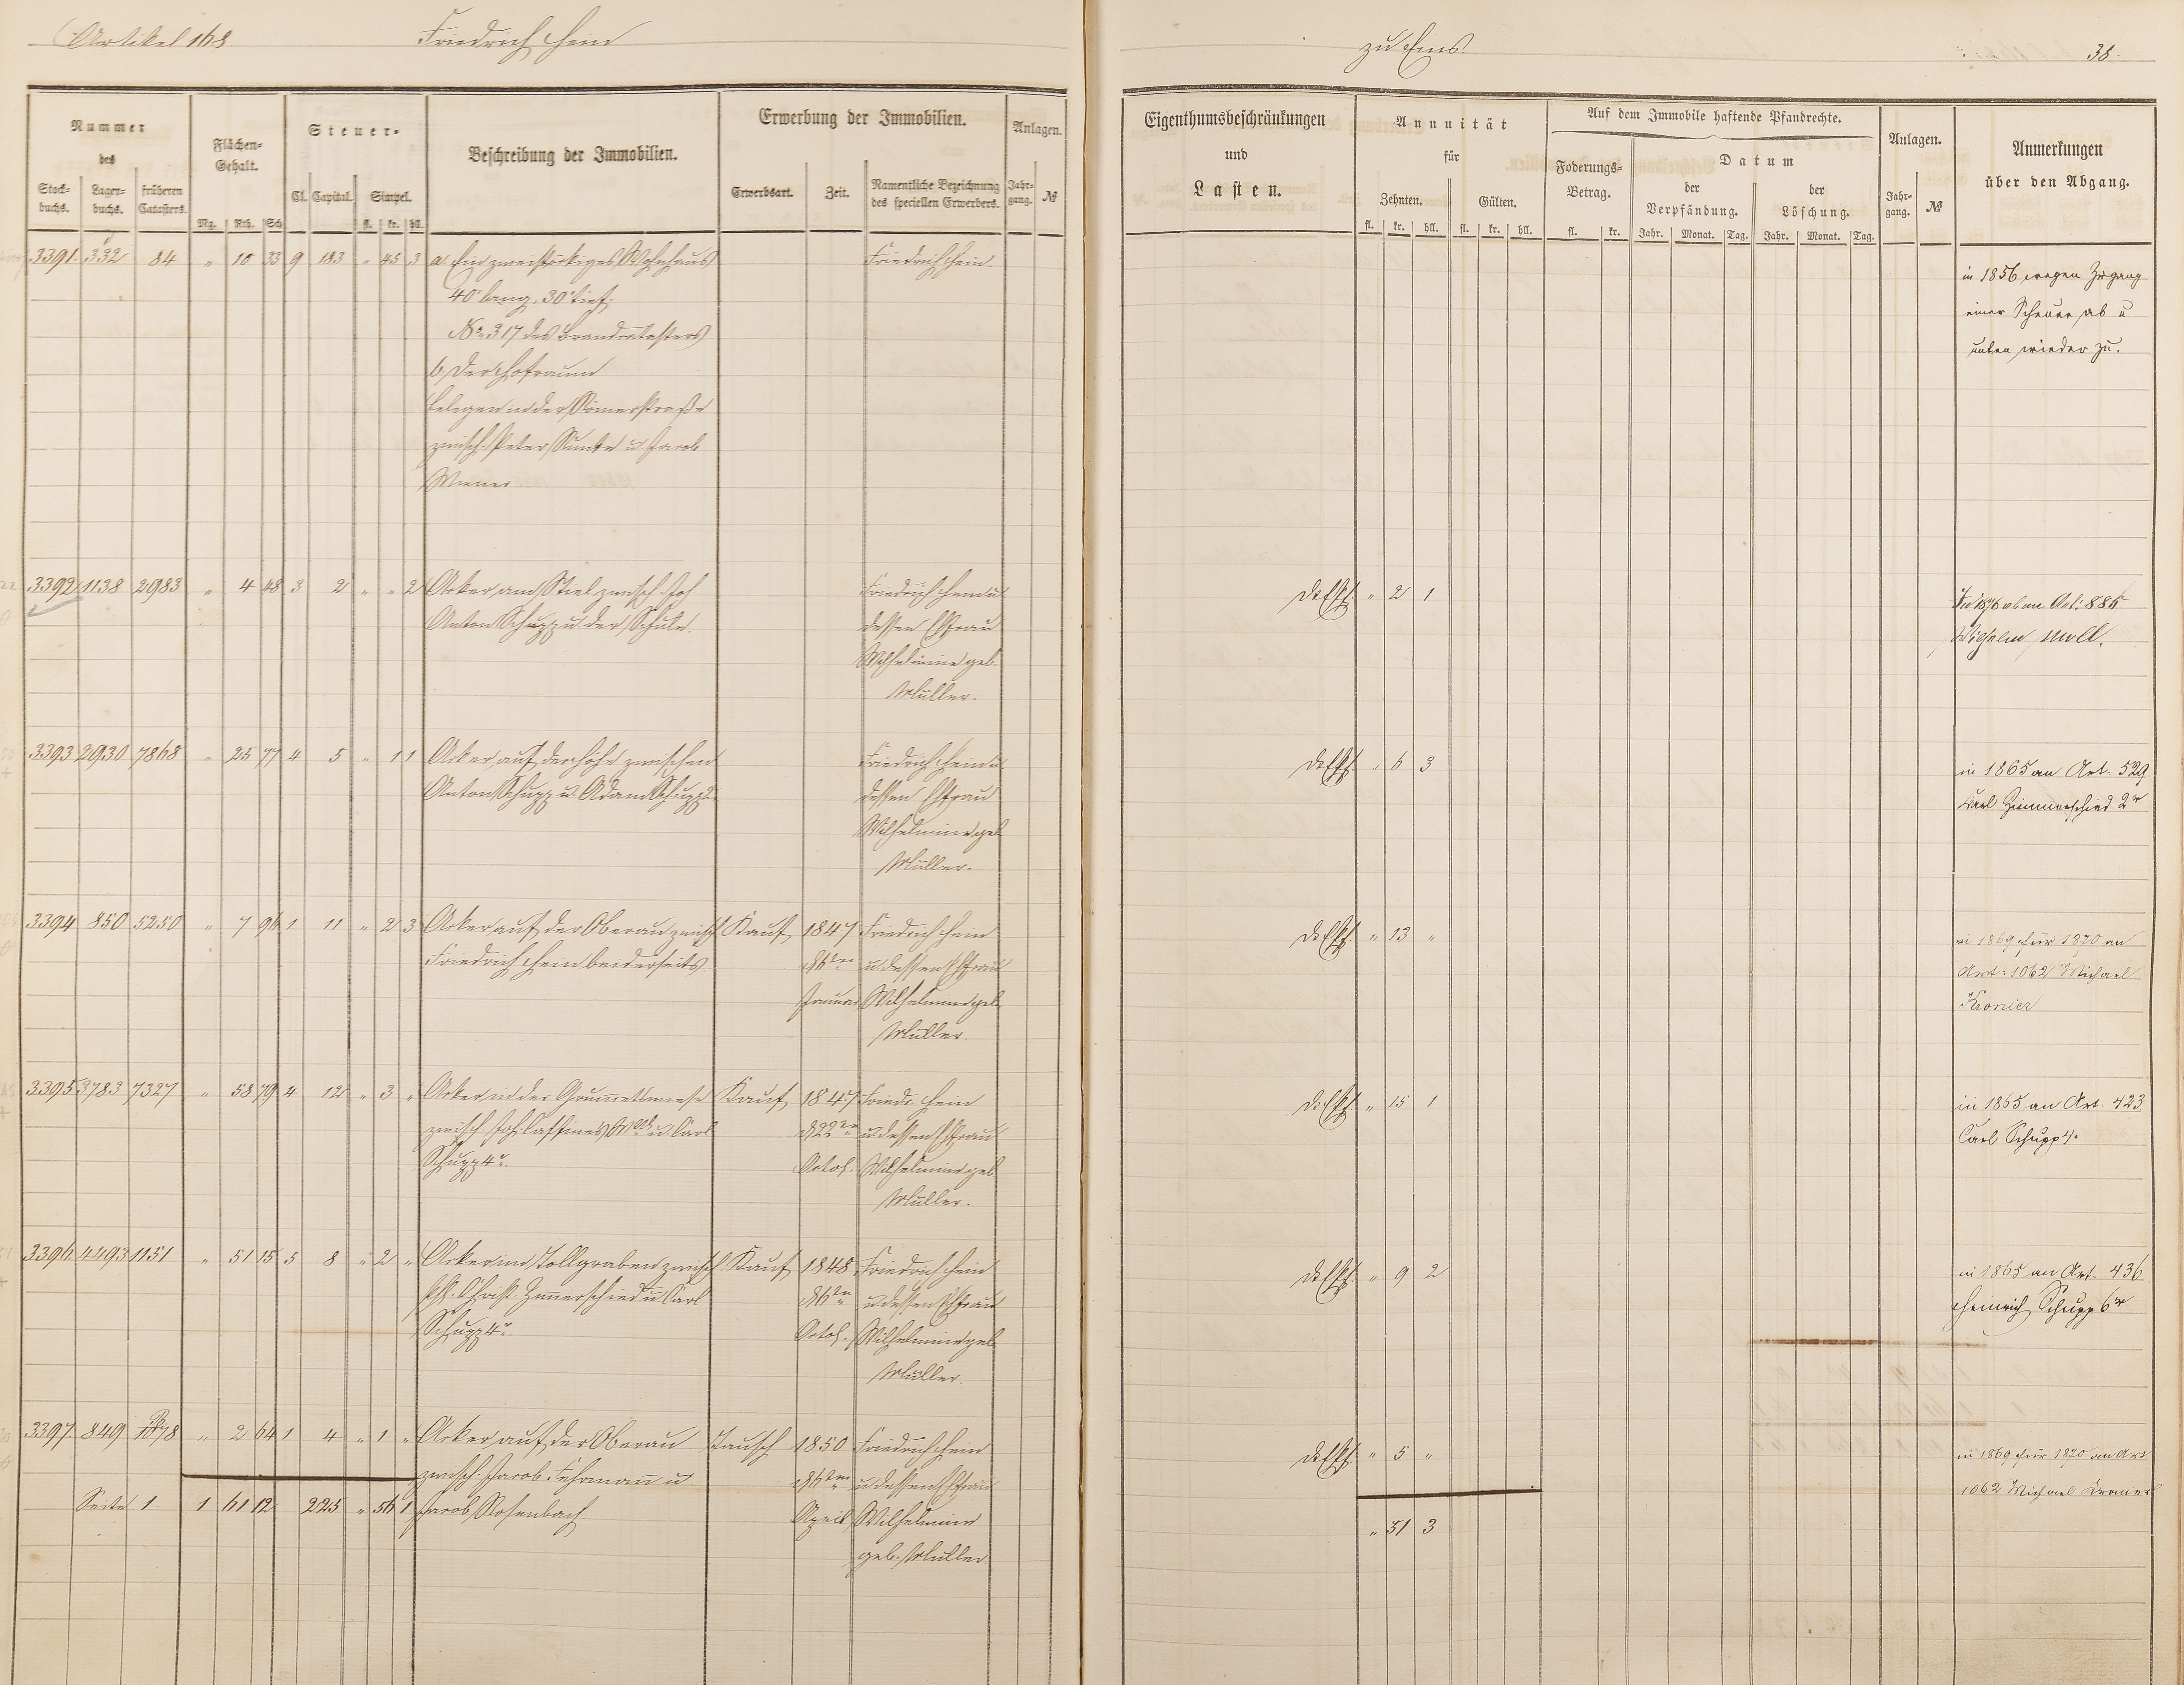 Artikel 168 Friedrich Hein zu Ems 38.
Nummer des
Stock-buchs. Lager-buchs. früheren Catasters.
Flächen-Gehalt.
Mg. Rth. Sch
Steuer-
Cl. Capital. Simpel.
fl. kr. hll.
Beschreibung der Immobilien.
Erwerbung der Immobilien.
Erwerbsart. Zeit. Namentliche Bezeichnung des speciellen Erwerbers.
Anlagen.
Jahr-gang. №
Eigenthumsbeschränkungen
und
Lasten.
Annuität
für
Zehnten. Gülten.
fl. kr. hll. fl. kr. hll.
Auf dem Immobile haftende Pfandrechte.
Foderungs-Betrag.
fl. kr.
Datum
der Verpfändung. der Löschung.
Jahr. Monat. Tag. Jahr. Monat. Tag.
Anlagen.
Jahr-gang. №
Anmerkungen
über den Abgang.
3391 332 84 " 10 33 9 183 " 45 3 a. Ein zweistöckiges Wohnhaus Friedrich Hein. in 1856 wegen Zugang
40' lang, 30' tief. einer Scheuer ab u
No 317 des Brandcatasters unten wieder zu.
b, Der Hofraum
belegen in der Römerstraße
zwisch. Peter Sünte u Jacob
3392 1138 2983 " 4 48 3 2 " " 2 Acker am Stiel zwisch. Joh Friedrich Hein u " 2 1 1876 ab an Art: 885
Anton Schupp u der Schule. dessen Ehfrau Wilhelm Moll.
Wilhelmine geb.
Müller.
3393 2930 7868 " 25 77 4 5 " 1 1 Acker auf der Höhe zwischen Friedrich Hein u " 6 3 in 1865 an Art. 529
Anton Schupp u. Adam Schupp dessen Ehfrau Carl Zimmerschied 2r
Wilhelmine geb
Müller.
3394 850 5250 " 7 96 1 11 " 2 3 Acker auf der Oberau zwisch Kauf 1847 Friedrich Hein " 13 " in 1869 für 1870 an
Friedrich Hein beiderseits. u. dessen Ehfrau Art: 1062 Michael
Januar Wilhelmine geb
Müller.
3395 3783 7327 " 58 79 4 12 " 3 " Acker in der Grummetswiese Kauf 1847 Friedr. Hein " 15 1 in 1865 an Art. 423
u. dessen Ehfrau Carl Schupp 4.
Schupp 4r. Octob. Wilhelmine geb
Müller.
3396 4493 1151 " 51 15 5 8 " 2 " Acker im Tollgraben zwisch Kauf 1848 Friedrich Hein " 9 2 in 1865 an Art. 436
Christ. Zimmerschied u Carl u. dessen Ehfrau Heinrich Schupp 6r
Schupp 4r. Octob. Wilhelmine geb
Müller.
3397 849 " 2 64 1 4 " 1 " Acker auf der Oberau Tausch 1850 Friedrich Hein " 5 " in 1869 für 1870 an Art
zwisch. Jacob Fuhrmann u u. dessen Ehfrau 1062 Michael
Seite 1 1 61 12 225 " 56 1 Jacob Rosenbach April Wilhelmine " 51 3
geb. Müller